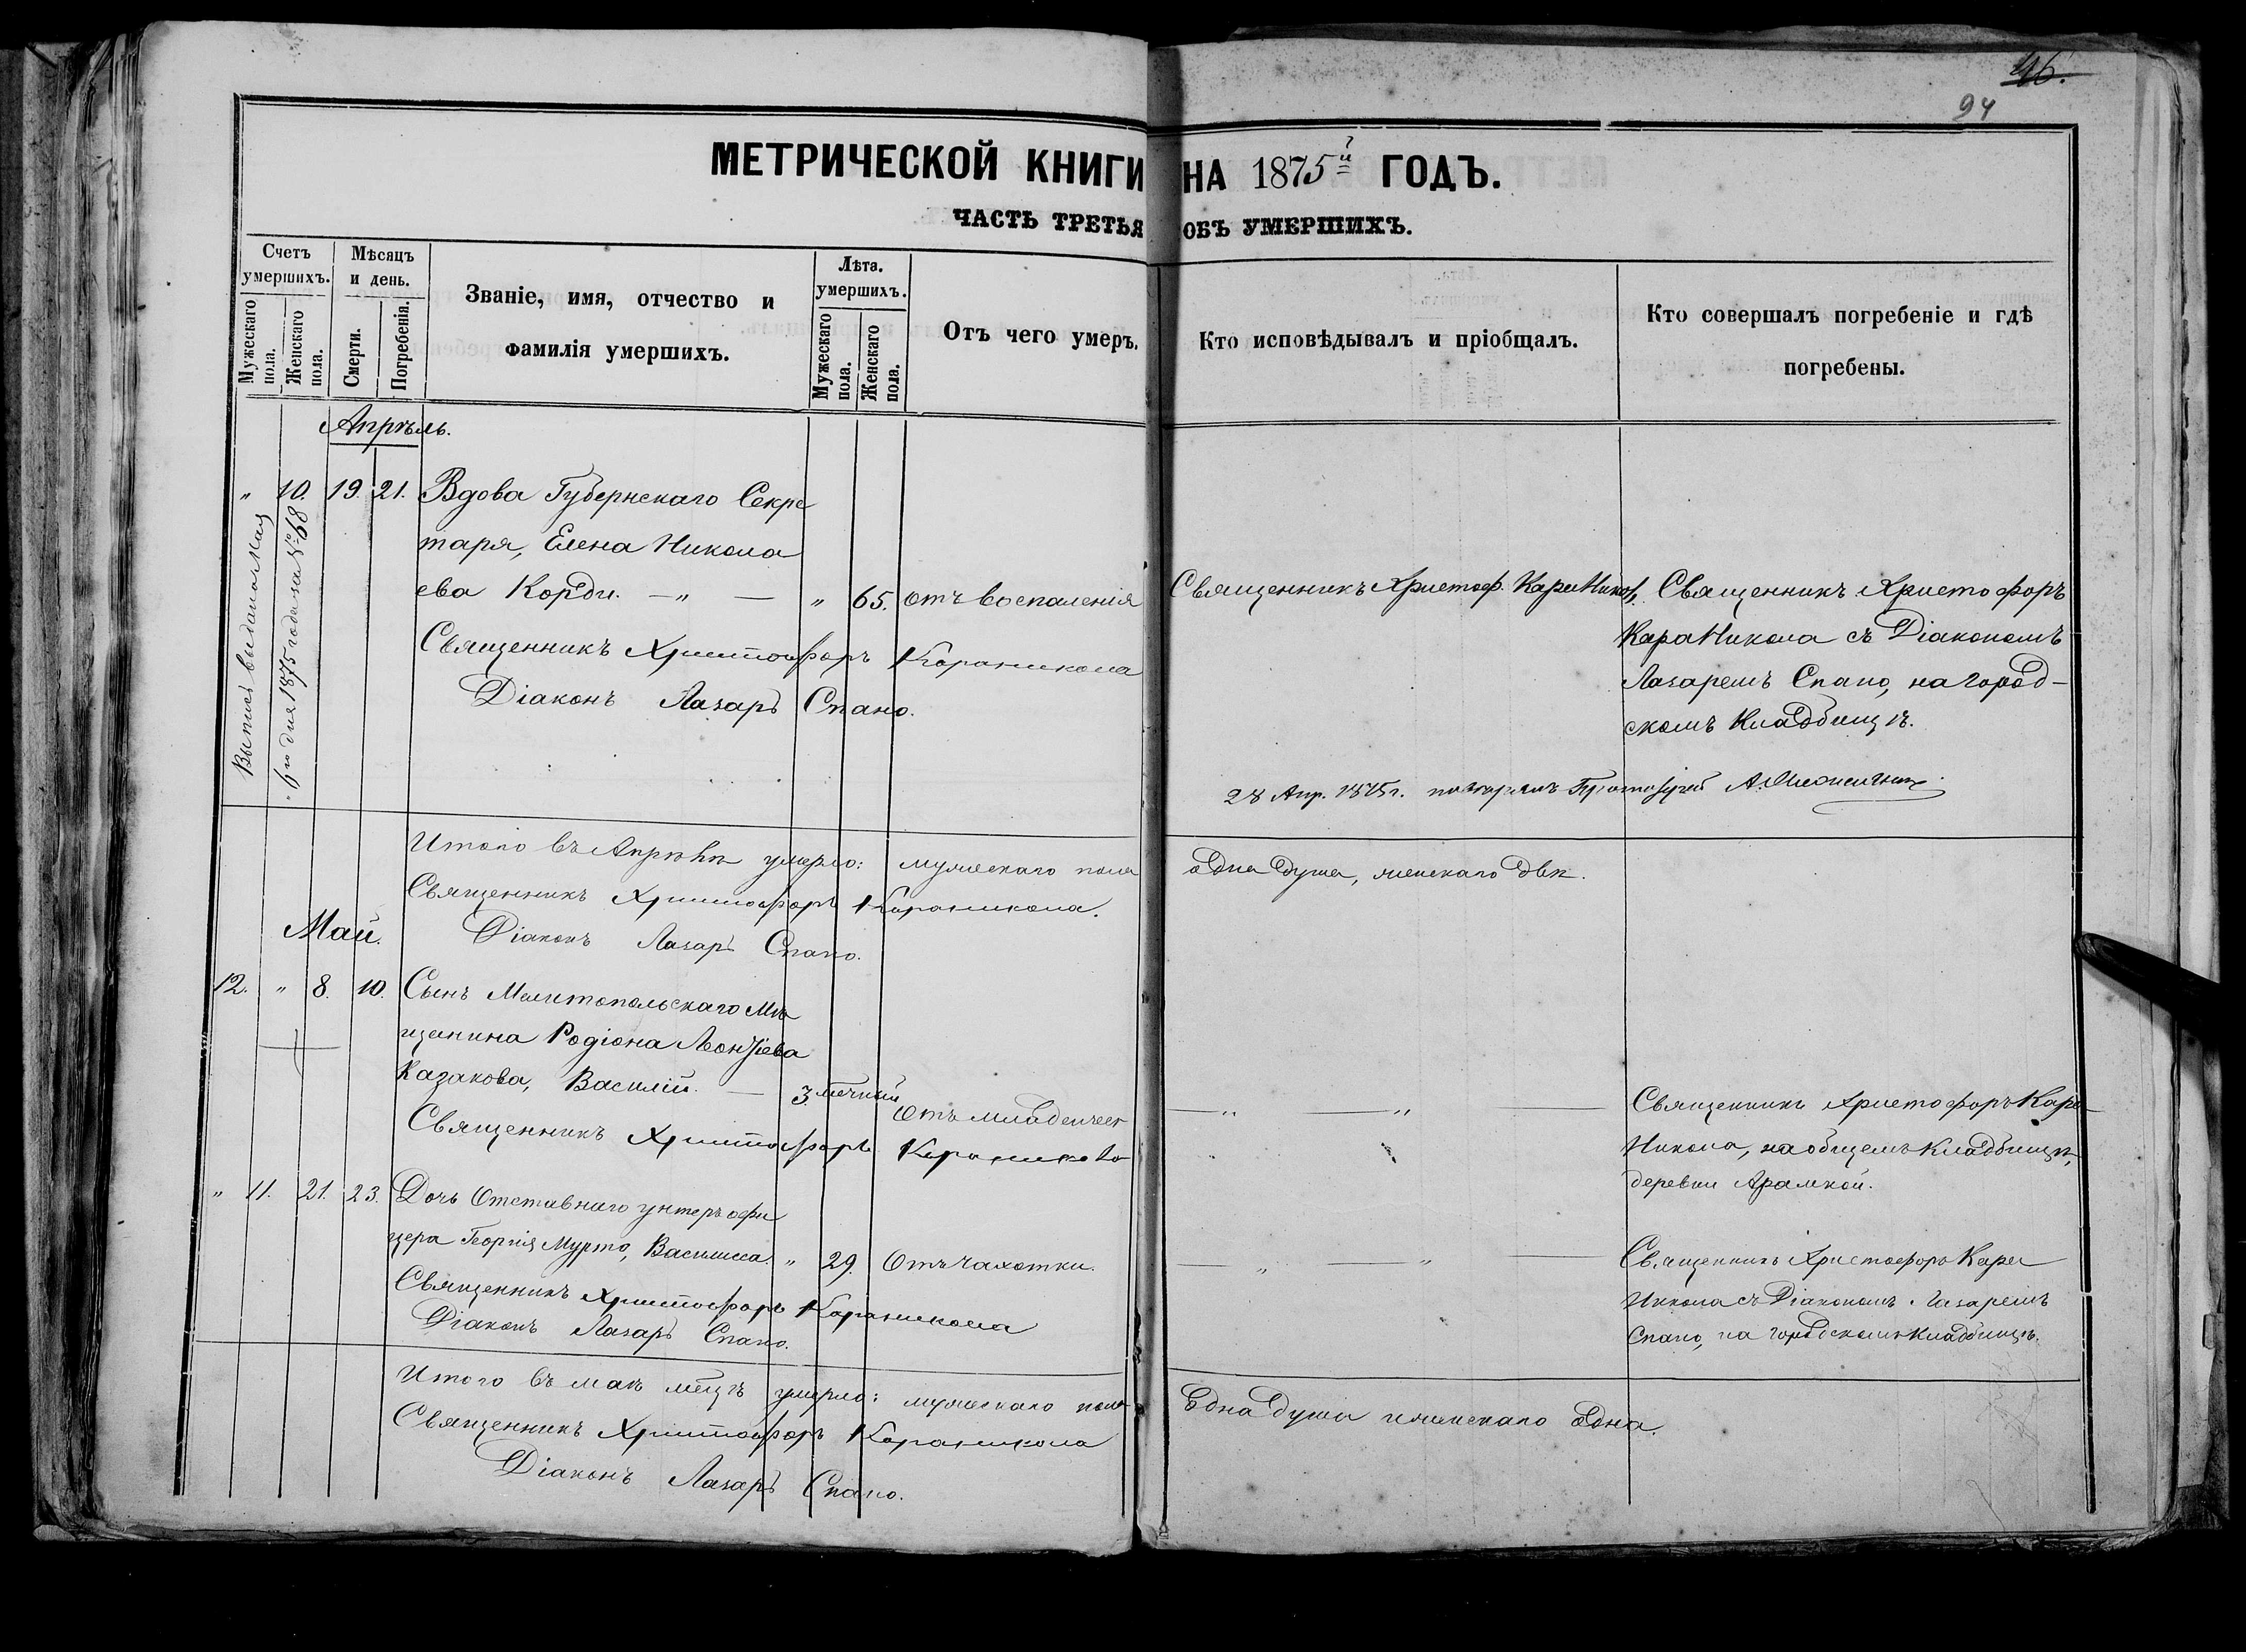 46.
94
МЕТРИЧЕСКОЙ КНИГИ НА 1875й ГОДЪ.
ЧАСТЬ ТРЕТЬЯ ОБЪ УМЕРШИХЪ.
Счетъ умершихъ.
Мужескаго пола.
Женскаго пола.
Мѣсяцъ и день.
Смерти.
Погребенія.
Званіе, имя, отчество и
фамилія умершихъ.
Лѣта. умершихъ.
Мужескаго пола.
Женскаго пола.
Отъ чего умеръ.
Кто исповѣдывалъ и пріобщалъ.
Кто совершалъ погребеніе и гдѣ
погребены.
Апрѣль.
" 10. 19. 21. Вдова Губернскаго Секре
таря, Елена Никола
ева Корди. — " — " 65. отъ воспаленія
Священникъ Христоф. КараНикол.
Священникъ Христофоръ
КараНикола съ Діакономъ
Лазаремъ Спано, на город-
скомъ Кладбищѣ.
Священникъ Христофоръ Караникола
Діаконъ Лазарь Спано.
Выпись выдана Мая
дня 1875 года за № 68
28 Апр. 1875 г.
Итого въ Апрѣлѣ умерло: мужескаго пола одна душа, женскаго двѣ.
Священникъ Христофоръ Караникола.
Діаконъ Лазарь Спано.
Май.
12. " 8. 10. Сынъ Мелитопольскаго Мѣ
щанина Родіона Леонтіева
Казакова, Василій. — 3. мѣсячный Отъ младенчес
— " — " —
Священникъ Христофоръ Кара
Никола, на общемъ Кладбищѣ,
деревни Арамкой.
Священникъ Христофоръ Караникола
" 11. 21. 23. Дочь Отставнаго унтеръ офи
цера Георгія Мурто, Василиса. " 29. Отъ чахотки.
— " — " —
Священникъ Христофоръ Кара
Никола съ Діакономъ Лазаремъ
Спано, на городскомъ Кладбищѣ.
Священникъ Христофоръ Караникола
Діаконъ Лазарь Спано.
Итого въ маѣ мѣцѣ умерло: мужескаго пола Една душа женскаго одна.
Священникъ Христофоръ Караникола
Діаконъ Лазарь Спано.